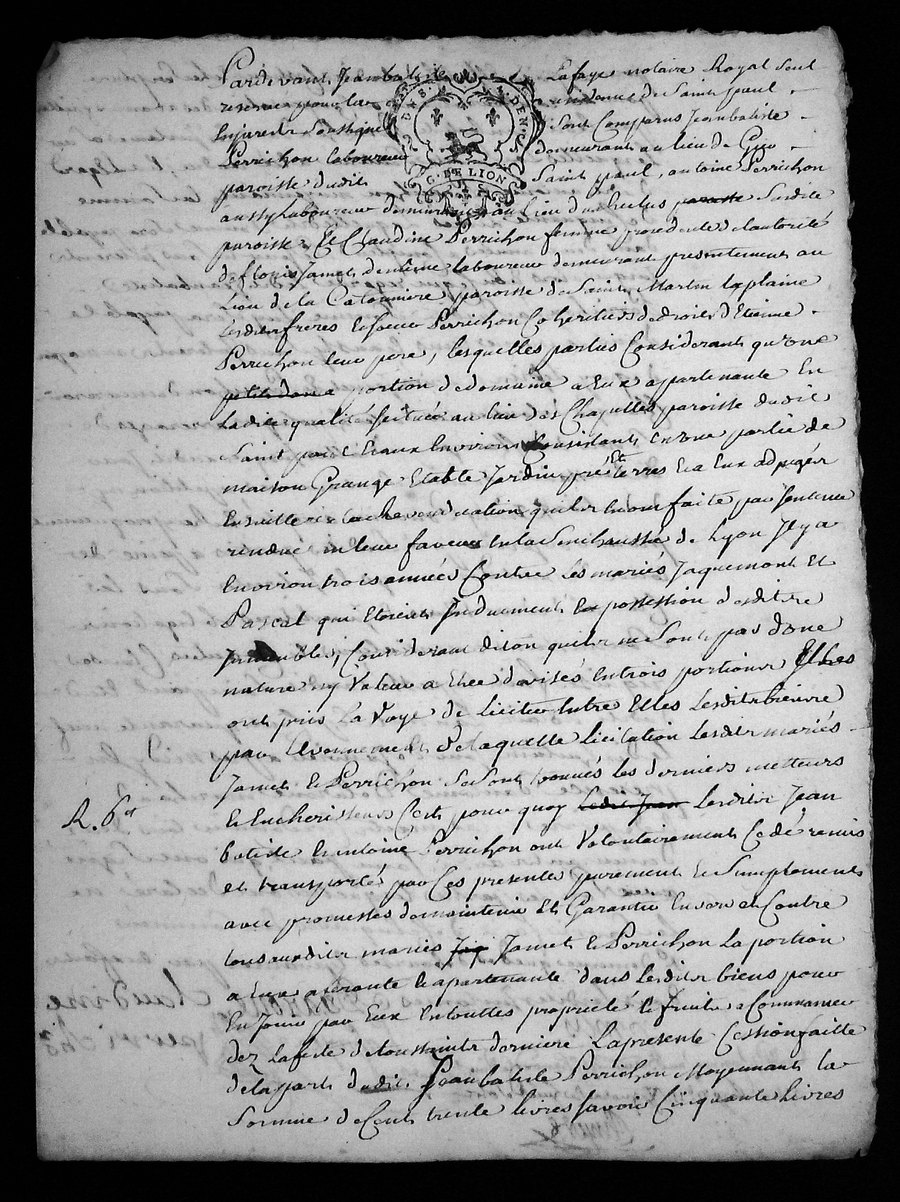 Pardevant Jeanbatiste Lafaye notaire Royal Seul
reservé pour la residence de Saint paul
Enjarest Soussigné Sont Comparus Jeanbatiste
Perrichon laboureur demeurant au lieu de
paroisse dudit Saint paul, antoine Perrichon
aussy Laboureur demeurant au lieu du susditte
paroisse, Et Claudine Perrichon femme procedente de lautorité
de Louis Jamet dentiere laboureur demeurant presentement au
Lieu de la Catonniere paroisse de Saint Martin laplaine
Lesdits freres et soeur Perrichon Coheritiers de droit d'Etienne
Perrichon leur pere, lesquelles parties Considerant qu'une
portion de domaine a Eux apartenante En
Ladite qualité scituée au lieu des Chapelles paroisse dudit
Saint paul Et aux Environs Consistant en une partie de
maison Grange Etable Jardin prés Et terres Et a Eux adjugés
Ensuitte de la revendication quils en ont faite par Sentence
rendue en leur faveur En la Senechaussée de Lyon Jl y a
Environ trois années Contre Les mariés Jaquemont Et
Pascal qui Etoient Jnduement En possession desdits
Jmmeubles, Considerant dit on quils ne Sont pas d'une
nature ny Valeur a Etre divisés En trois portions Elles
ont pris La Voye de liciter Entre Elles Lesdits biens
par Evenement de laquelle licitation Lesdits mariés
Jamet et Perrichon se sont trouvés les derniers metteurs
Et Encherisseurs C'est pour quoy ledit Jean Lesdits Jean
batiste Et antoine Perrichon ont Volontairement Cedé remis
et transporté par Ces presentes purement Et Simplement
avec promesses de maintenir Et Garantir Envers et Contre
tous auxdits mariés Jaq Jamet et Perrichon La portion
a Eux afferante Et apartenante dans Lesdits biens pour
En Jouir par Eux En touttes proprieté Et fruits a Commancer
dez La fete de toussaints derniere La presente Cession faitte
de la part dudit Jeanbatiste Perrichon Moyennant la
Somme de Cent trente livres Savoir Cinquante Livres
R. 6d
G. DE LION
Claudine
perrichon